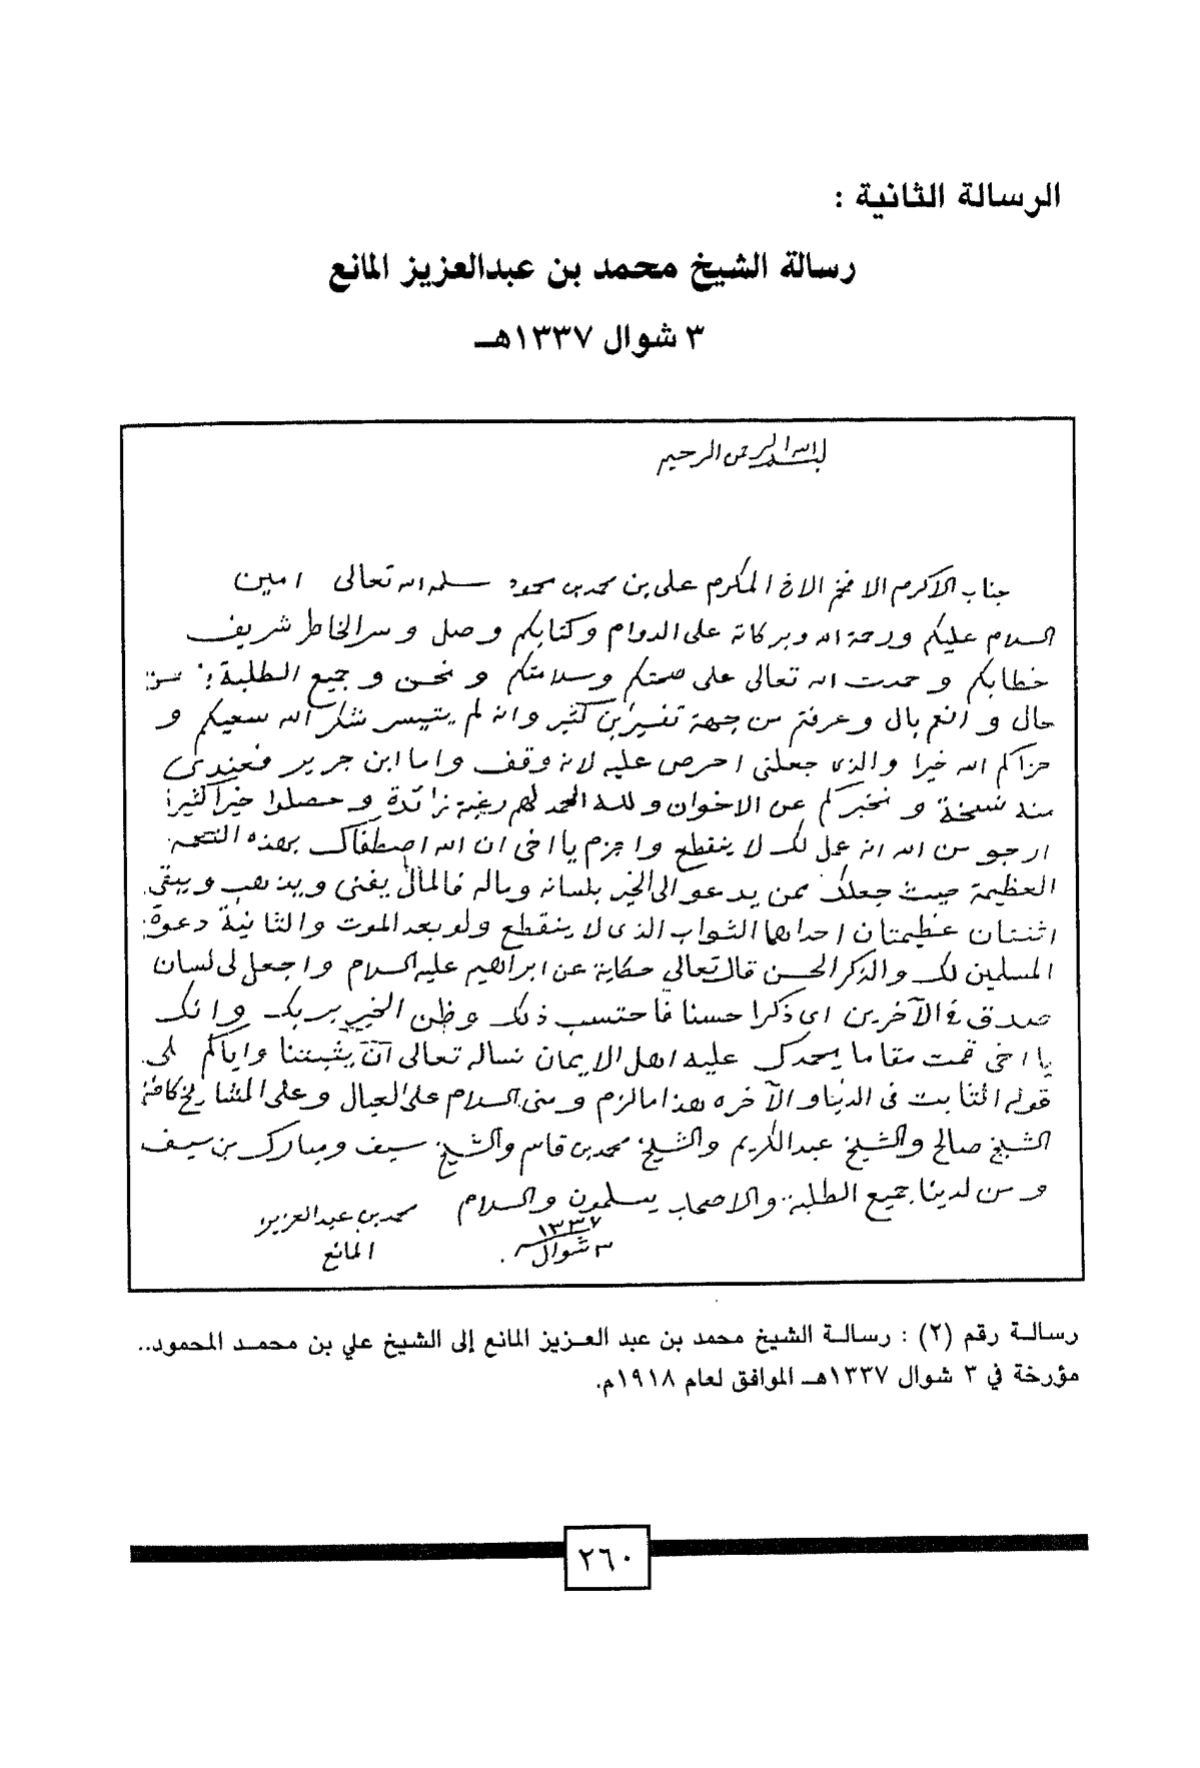 الرسالة الثانية :
رسالة الشيخ محمد بن عبدالعزيز المانع
٣ شوال ١٣٣٧هـ
بسم الله الرحمن الرحيم
جناب الاكرم الافخم الاخ المكرم علي بن محمد بن محمود سلمه الله تعالى امين
السلام عليكم ورحمة الله وبركاته على الدوام وكتابكم وصل وسر الخاطر شريف
خطابكم وحمدت الله تعالى على صحتكم وسلامتكم ونحن وجميع الطلبة بحسن
حال وانعم بال وعرفتم من جهة تفسير ابن كثير وانه لم يتيسر شكر الله سعيكم و
جزاكم الله خيرا والذي جعلني احرص عليه لانه وقف واما ابن جرير فعندي
منه نسخة ونخبركم عن الاخوان ولله الحمد لهم رغبة زائدة وحصلوا خيرا كثيرا
ارجو من الله انه عمل لك لا ينقطع واجزم يا اخي ان الله اصطفاك بهذه النعمة
العظيمة حيث جعلك ممن يدعو الى الخير بلسانه وماله فالمال يفنى ويذهب ويبقى
اثنتان عظيمتان احداهما الثواب الذي لا ينقطع ولو بعد الموت والثانية دعوة
المسلمين لك والذكر الحسن قال تعالى حكاية عن ابراهيم عليه السلام واجعل لي لسان
صدق في الآخرين اي ذكرا حسنا فاحتسب ذلك وظن الخير بربك وانك
يا اخي قمت مقاما يحمدك عليه اهل الايمان نساله تعالى ان يثبتنا واياكم على
قوله الثابت في الدنيا والآخره هذا ما لزم ومني السلام على العيال وعلى المشايخ كافة
الشيخ صالح والشيخ عبد الكريم والشيخ محمد بن قاسم والشيخ سيف ومبارك بن سيف
ومن لدينا جميع الطلبة والاصحاب يسلمون والسلام
محمد بن عبد العزيز
المانع
١٣٣٧
٣ شوال
رسالة رقم (٢) : رسالة الشيخ محمد بن عبد العزيز المانع إلى الشيخ علي بن محمد المحمود..
مؤرخة في ٣ شوال ١٣٣٧هـ الموافق لعام ١٩١٨م.
٢٦٠